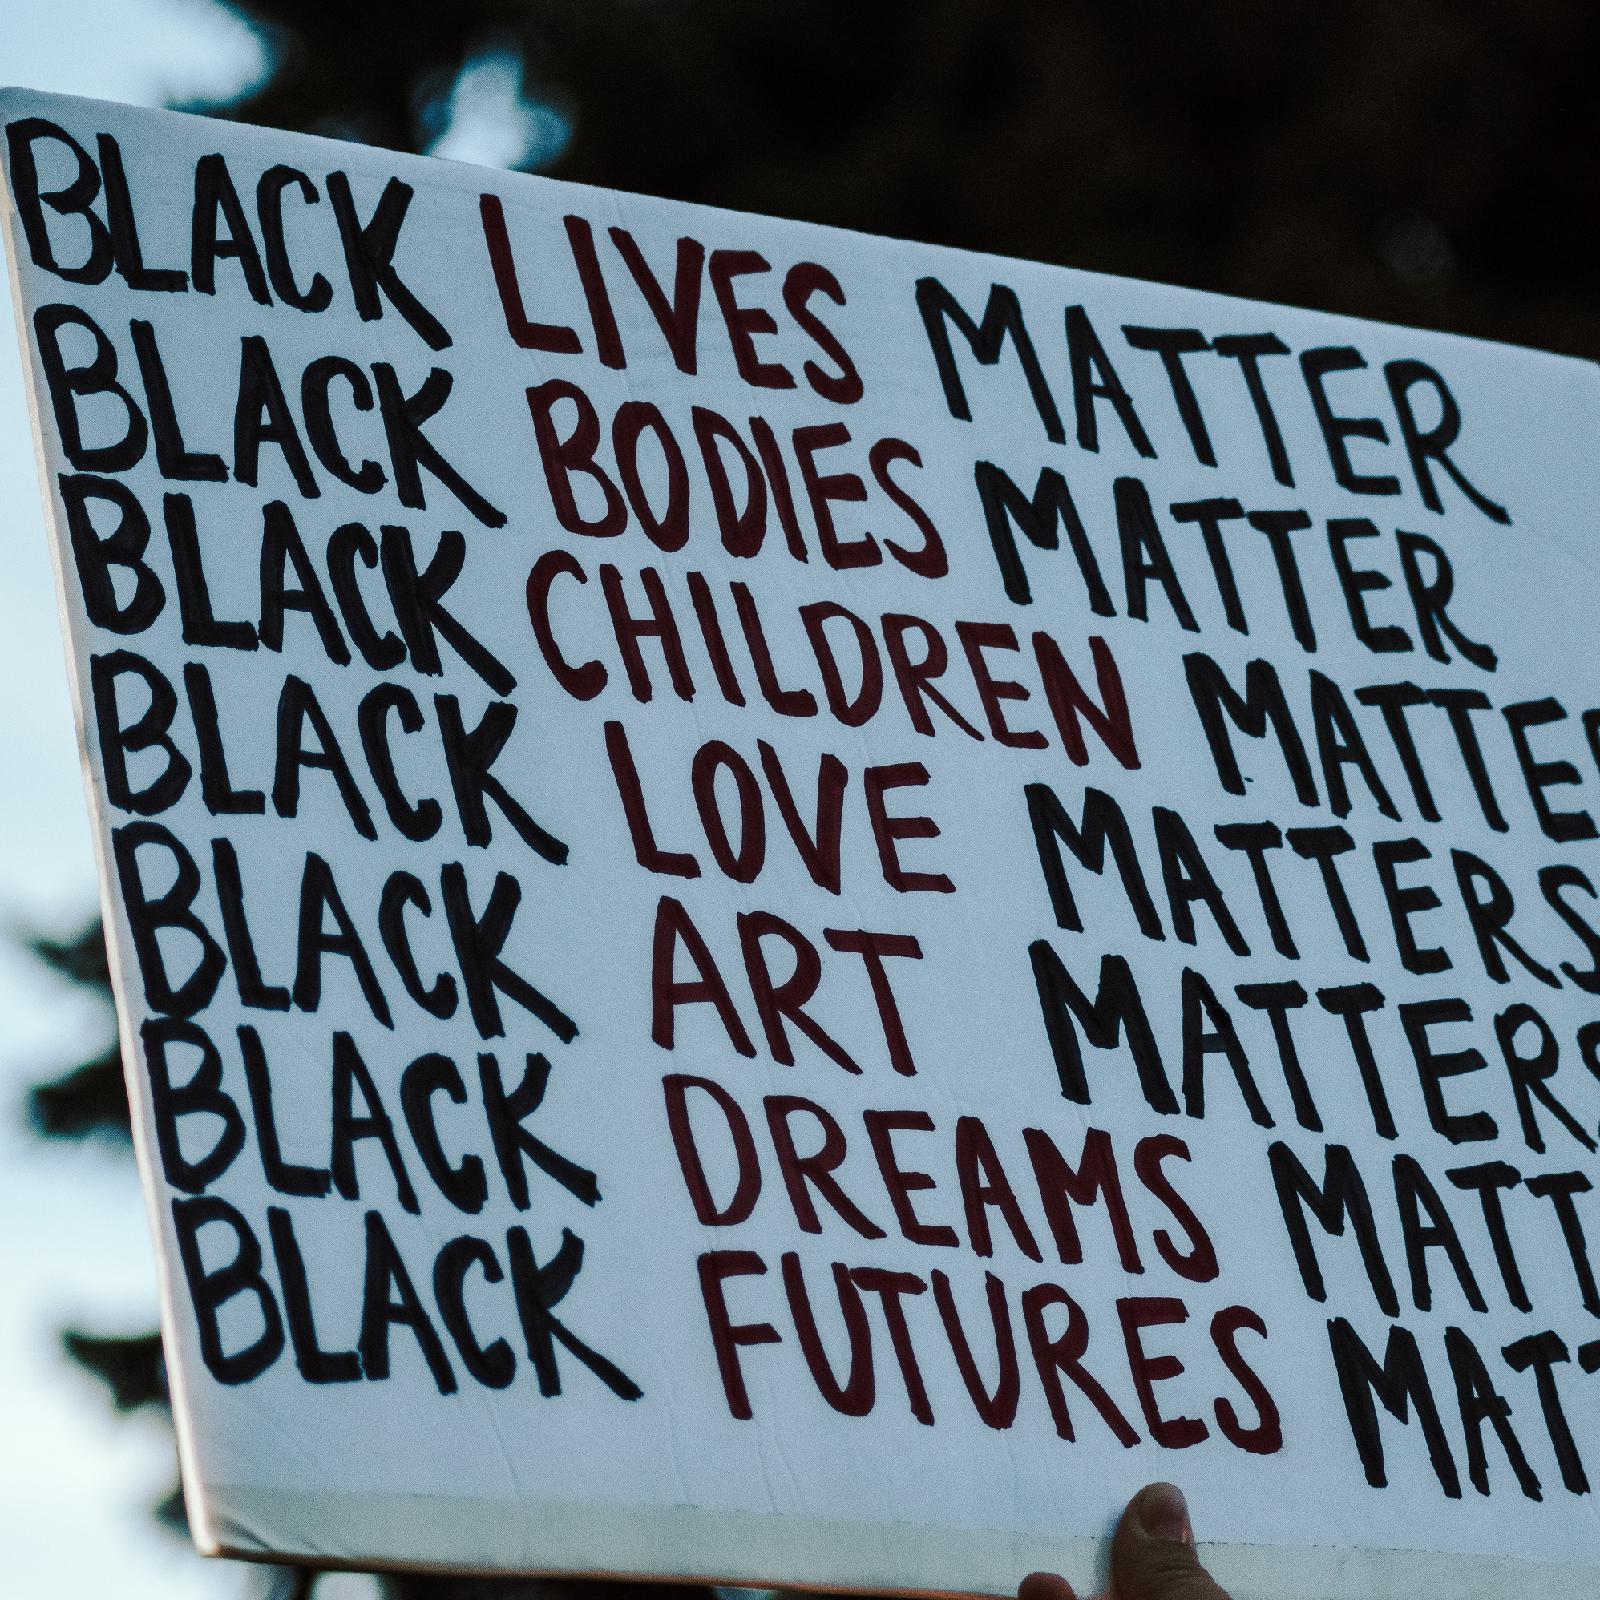 BLACK LIVES MATTER
BLACK BODIES MATTER
BLACK CHILDREN MATTER
BLACK LOVE MATTERS
BLACK ART MATTERS
BLACK DREAMS MATT
BLACK FUTURES MATT